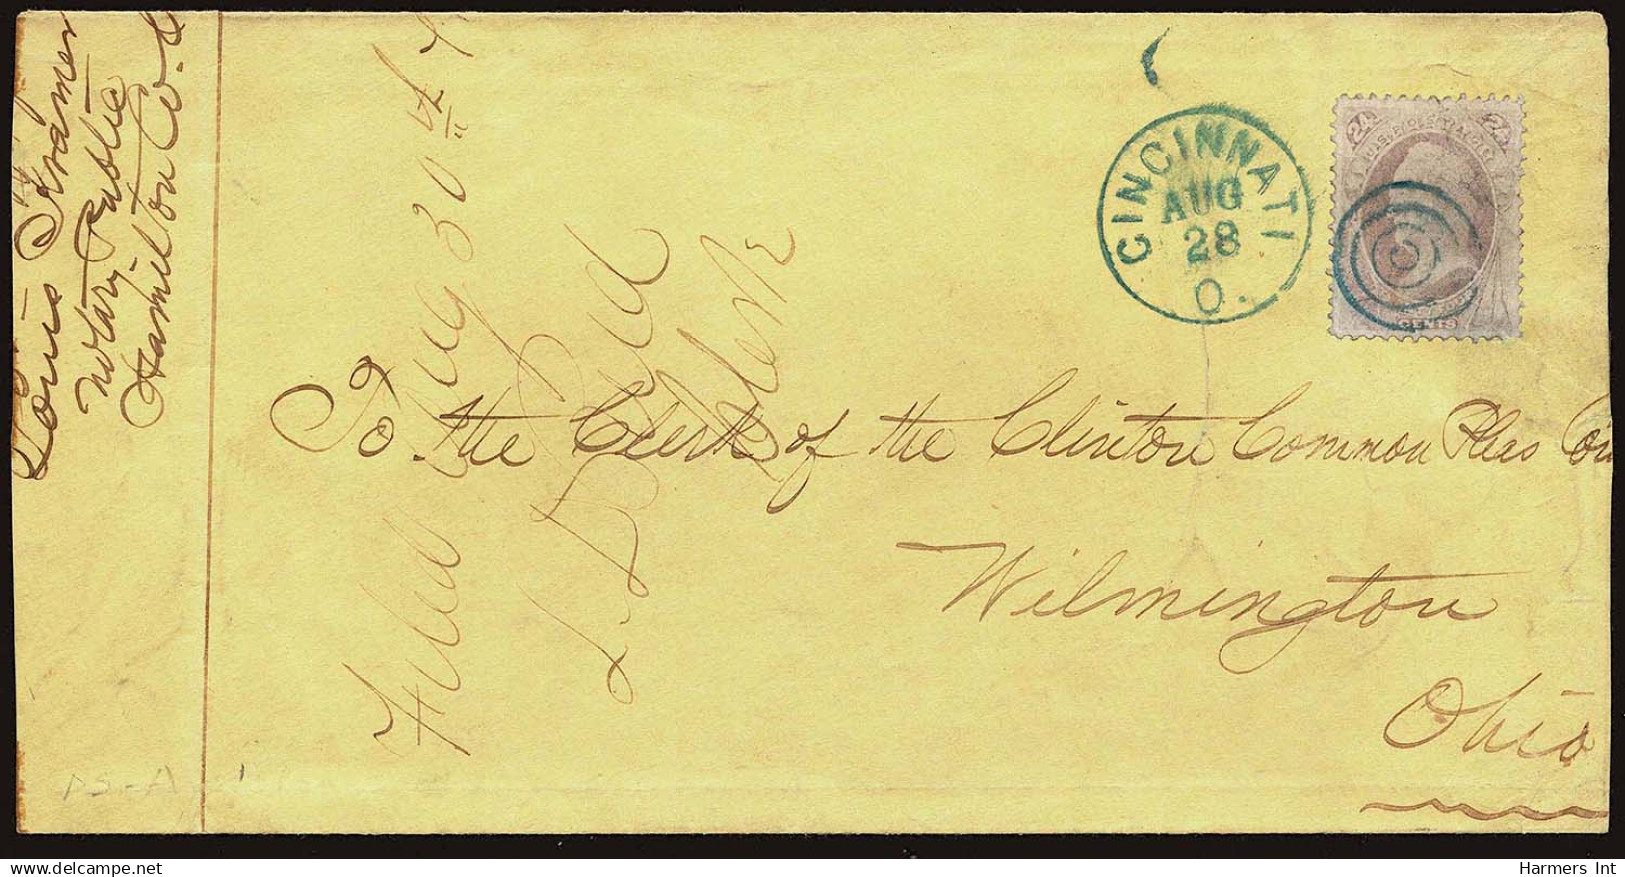 Louis Kramer
Notary Public
Hamilton Co.
Filed Aug 30th
CINCINNATI
AUG
28
O.
24 24
U.S. POSTAGE
CENTS
To the Clerk of the Clinton Common Pleas Cou
Wilmington
Ohio
Clerk
Harmers Int